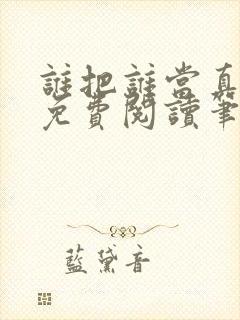 誰把誰當真
免費閱讀筆
藍黛音